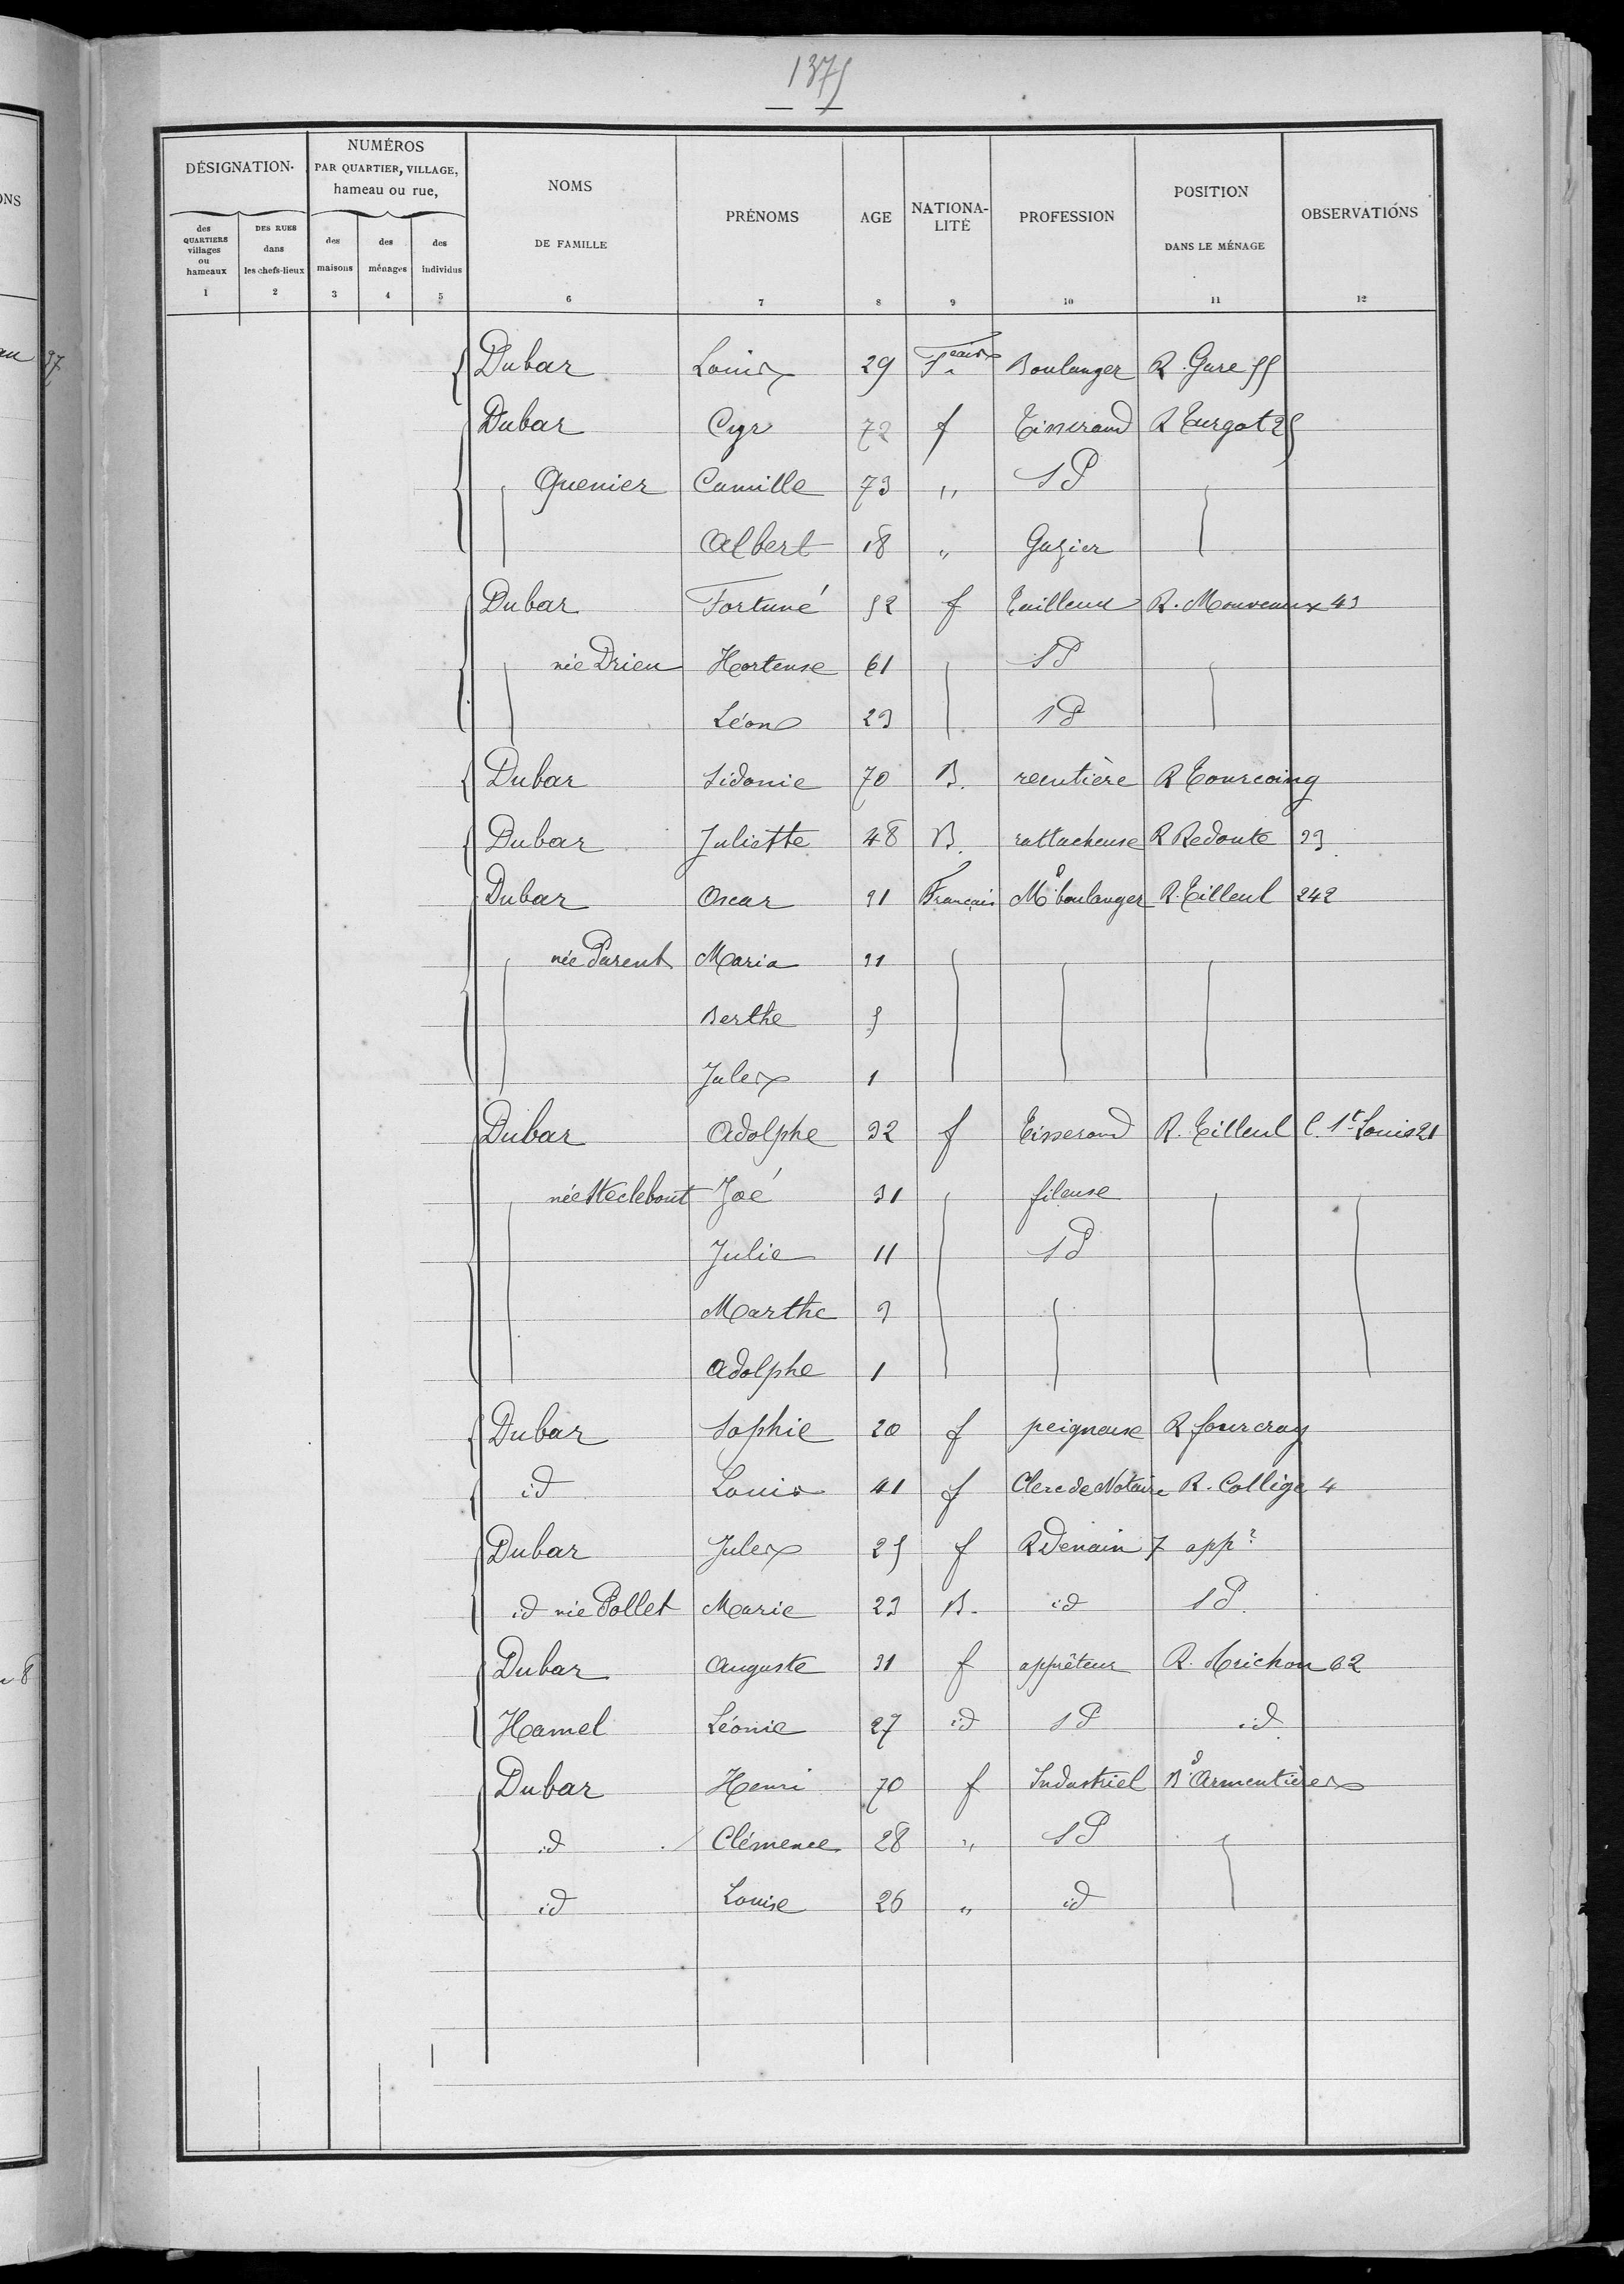 1375
DÉSIGNATION
NUMÉROS
PAR QUARTIER, VILLAGE,
hameau ou rue,
NOMS
DE FAMILLE
PRÉNOMS
AGE
NATIONA-
LITÉ
PROFESSION
POSITION
DANS LE MÉNAGE
OBSERVATIONS
des
QUARTIERS
villages
ou
hameaux
DES RUES
dans
les chefs-lieux
des
maisons
des
ménages
des
individus
1 2 3 4 5 6 7 8 9 10 11 12
Dubar Louis 29 Fçais Boulanger R. Gare 55
Dubar Cyr 72 f Tisserand R Turgot 25
Quenier Camille 73 " SP
Albert 18 " Gazier
Dubar Fortuné 52 f Tailleur R. Mouveaux 43
née Drieu Hortense 61 SP
Léon 23 SP
Dubar Sidonie 70 B. rentière R Tourcoing
Dubar Juliette 48 B. rattacheuse R Redoute 33
Dubar Oscar 31 Français Md boulanger R. Tilleul 242
née Parent Maria 31
Berthe 5
Jules 1
Dubar Adolphe 32 f Tisserand R. Tilleul C. St Louis 21
née Steclebout Zoé 31 fileuse
Julie 11 SP
Marthe 9
Adolphe 1
Dubar Sophie 20 f peigneuse R fourcroy
id Louis 41 f Clerc de Notaire R. Collège 4
Dubar Jules 25 f R Denain 7 appr
id née Pollet Marie 23 B. id SP.
Dubar Auguste 31 f apprêteur R. 62
Hamel Léonie 27 id SP id
Dubar Henri 70 f Industriel Bd Armentières
id Clémence 28 " SP
id Louise 26 " id